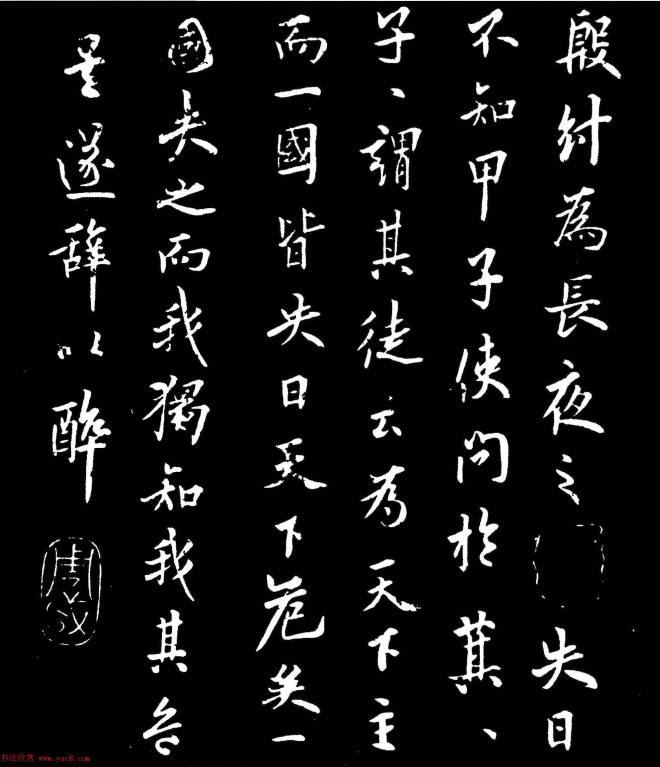 殷紂為長夜之失日
不知甲子使問於萁、
子、謂其徒云為天下主
而一國皆失日天下危矣一
國失之而我獨知我其危
遂辭以醉
书法欣赏 www.yac8.com